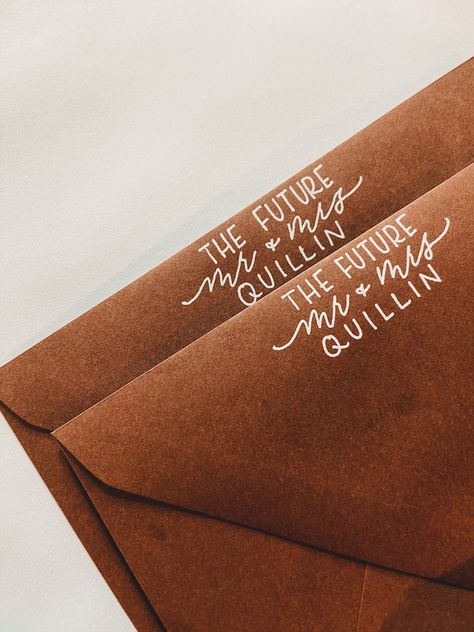 THE FUTURE
mr & mrs
QUILLIN
THE FUTURE
mr & mrs
QUILLIN